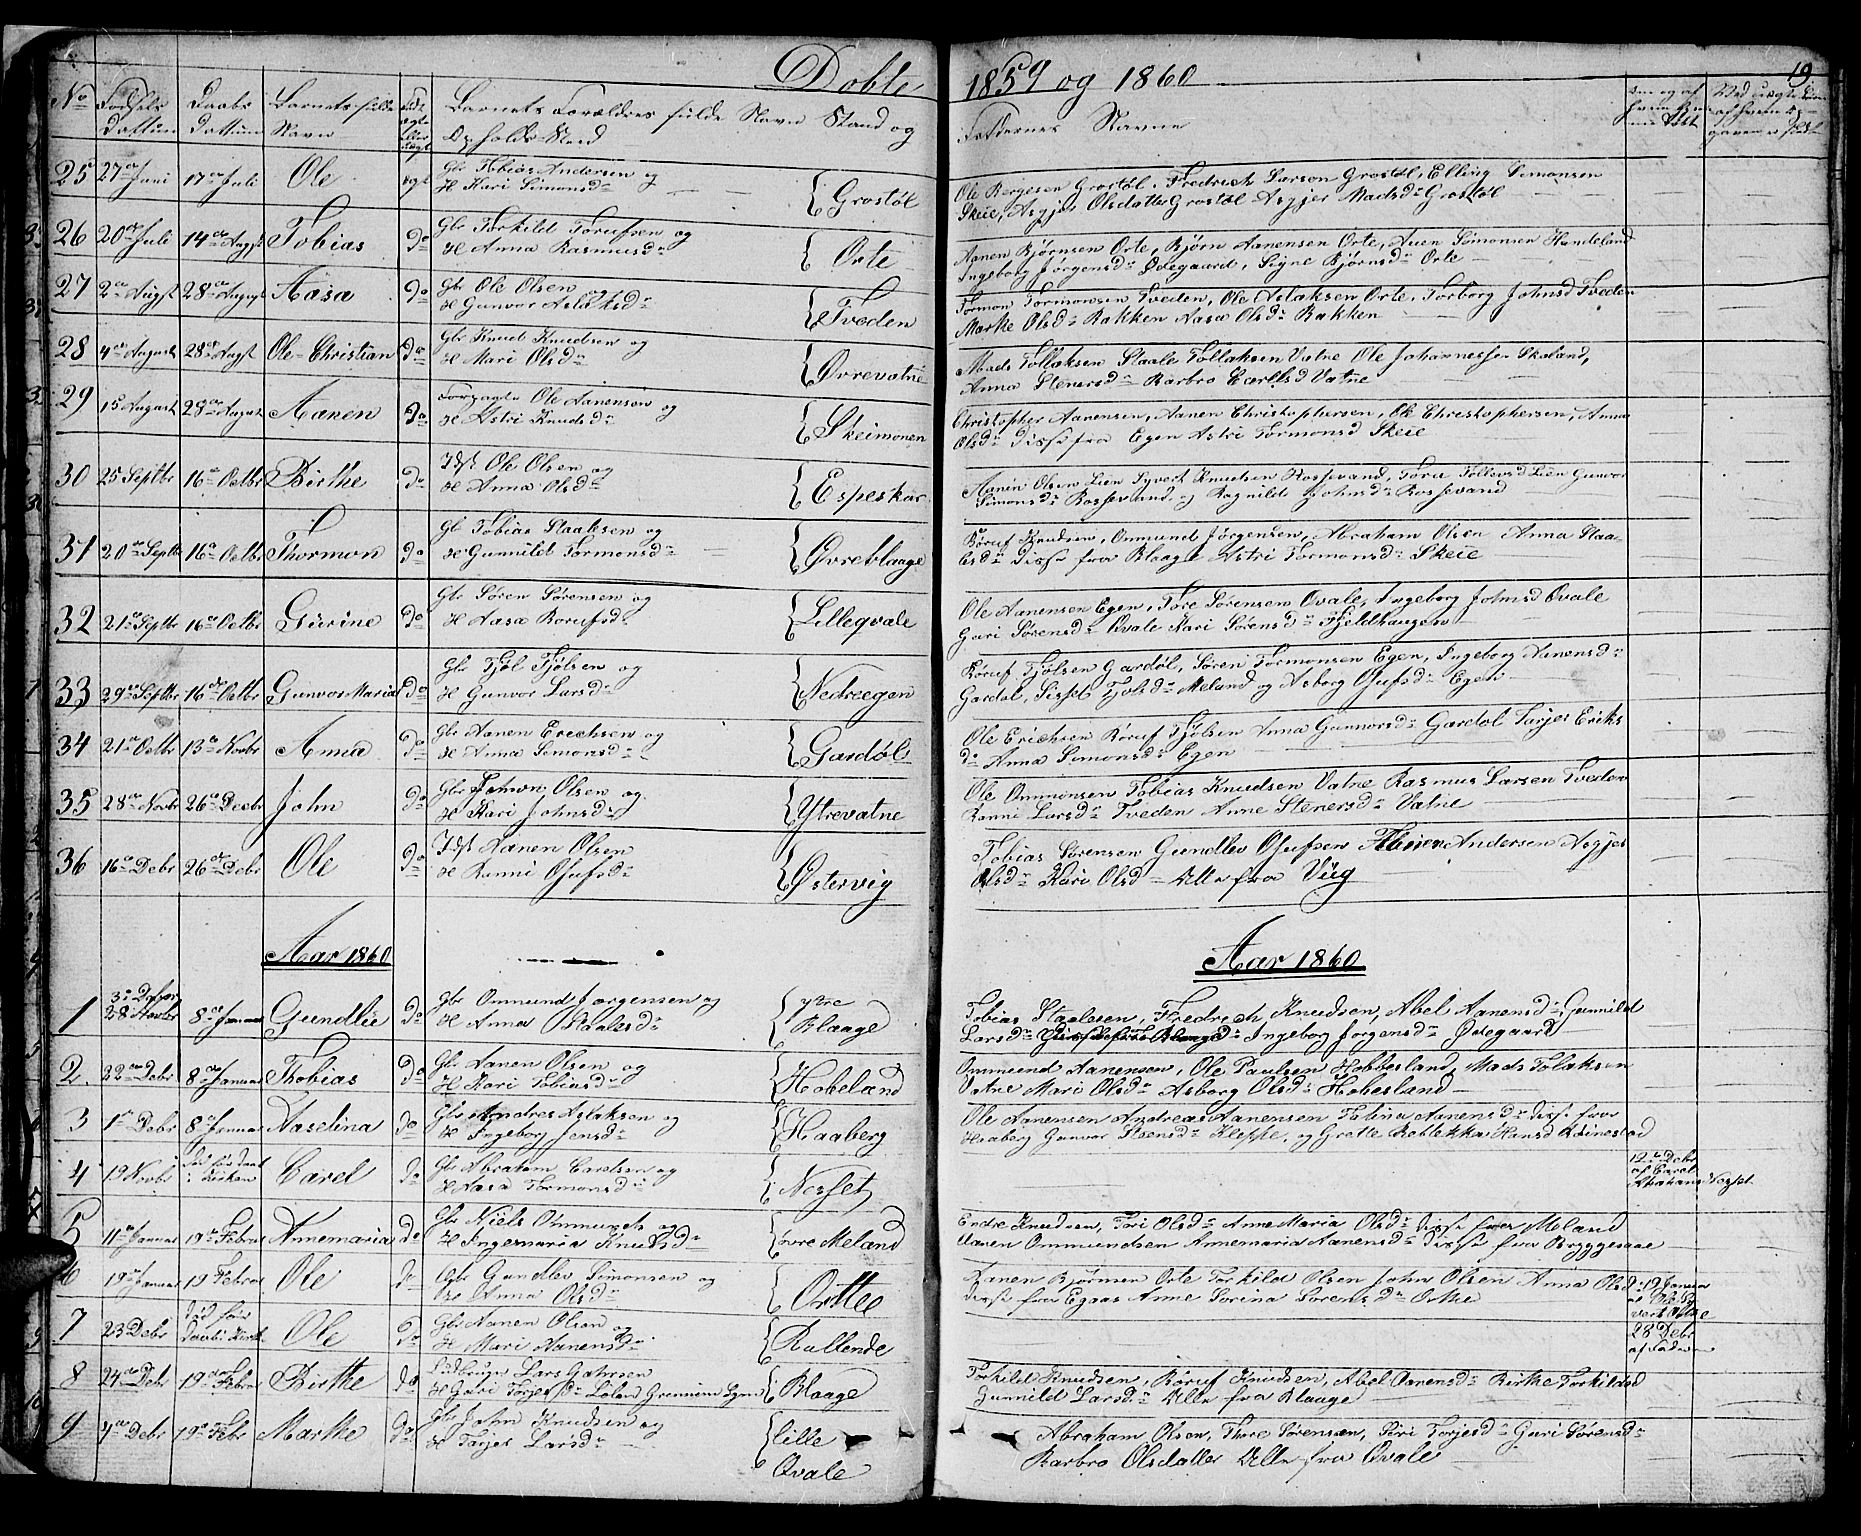 Døbte 1859 og 1860
19.
No Fødsels Dattum Daabs Dattum Barnets fulde Navn Barnets Forældres fulde Navn Stand og Opholds-Sted Faddernes Navne
25 27de Juni 17de Juli Ole ægt Gbr Tobias Andersen og
H Kari Simonsd Grostøl
Ole Børgesen Grostøl, Fredrich Larson Grostøl, Elling Simonsen
Skeie, Asgjer Olsdatter Grostøl Asgjer Madsd Grostøl
26 20de Juli 14de Augst Tobias Do Gbr Torkild Torufsen og
H Anna Rasmusd Orte
Aanen Bjørnsen Orte, Bjørn Aanensen Orte, Auen Simonsen Handeland
Ingeborg Jørgensd Ødegaard, Signe Bjørnsd Orte
27 2de Augst 28de Augst Aasa Do Gbr Ole Olsen og
H Gunvor Aslaksd Tveden
Tormon Tormonsen Tveden, Ole Aslaksen Orte, Torborg Johnsd Tveden
Marke Olsd Bakken Aasa Olsd Bakken
28 4de August 28de Augst Ole-Christian Do Gbr Knud Knudsen og
H Mari Olsd Øvrevatne
Mads Tollaksen Staale Tollaksen Vatne Ole Johannessen Skeland,
Anna Stenersd Barbro Carlsd Vatne
29 15 August 28de August Aanen Do Ole Aanenson og
H Astri Knudsd Skeimonen
Christopher Aanensen, Aanen Christophersen, Ole Christophersen, Anna
Olsd Disse fra Egen Astri Tormonsd Skeie
30 25 Septbr 16de Octbr Birthe Do Idst Ole Olsen og
H Anna Olsd Espeskar
Aanen Olsen Lien Syvert Knudsen Rossevand, Tore Tollevsd Lien Gunvor
Simonsd Rossevand og Ragnild Johnsd Rossevand
31 20de Septbr 16de Octbr Thormon Do Gbr Tobias Staalesen og
H Gunnild Tormonsd Øvreblaage
Røruf Knudsen, Ommund Jørgensen, Abraham Olsen Anna Staa-
lesd Disse fra Blaage Astri Tormonsd Skeie
32 21de Septbr 16de Octbr Gurine Do Gbr Søren Sørensen og
H Aasa Rorufsd Lilleqvale
Ole Aanensen Egen, Tore Sørensen Qvale, Ingeborg Johnsd Qvale
Guri Sørensd Qvale Kari Sørensd Fjeldhaugen
33 29de Septbr 16de Octbr Gunvor Maria Do Gbr Tjøl Tjølsen og
H Gunvor Larsd Nedreegen
Røruf Tjølsen Gardøl, Søren Tormonsen Egen, Ingeborg Aanensd
Gardøl, Sissel Tjølsd Meland og Asborg Osufsd Egen
34 21de Octbr 13de Novbr Anna Do Gbr Aanen Erichsen og
H Anna Simonsd Gardøl
Ole Erichsen Røruf Tjølsen Anna Gunnorsd Gardøl Tarjer Eriks
d Anna Simonsd Egen
35 28de Novbr 26de Decbr John Do Gbr Tomon Olsen og
H Kari Johnsd Ytrevatne
Ole Ommonsen Tobias Knudsen Vatne Rasmus Larsen Tveden
Ranni Larsd Tveden Anne Stenersd Vatne
36 16de Debr 26de Debr Ole Do Idst Aanen Olsen
H Ranni Osufsd Østervig
Tobias Sørensen Gundlev Osufsen Andersen Asgjer
Olsd Kari Olsd Alle fra Viig
Aar 1860
Aar 1860
1 8de Januar Gundlie Do Gbr Ommund Jørgensen og
H Anna Staalesd ytre Blaage
Tobias Staalesen, Fredrich Knudsen, Abel Aanensd, Gunnild
Larsd Ingeborg Jørgensd Ødegaard
2 22de Debr 8de Januar Thobias Do Gbr Aanen Olsen og
H Kari Tobiasd Hobeland
Ommund Aanensen, Ole Paulsen Hobbesland, Mads Tolaksen
Vatne Mari Olsd Asborg Olsd Hobesland
3 1de Debr 8de Januar Aaselina Do Gbr Andres Aslaksen og
H Ingeborg Jensd Haaberg
Ole Aanensen Andreas Aanensen Talina Aanensd disse fra
Haaberg Gunvor Steensd Kleppe, og Grette Rebekka Hansd Reinestad
4 19 Novbr Død før Daab i Kirken Carel Do Gbr Abraham Carelsen og
H Aasa Tormonsd Nesset
12te Debr af Carel Abrahams Nesset
5 11de Januar 19de Februar Annemaria Do Gbr Niels Ommunds og
H Ingermaria Knudsd øvre Meland
Endre Knudsen, Tori Olsd Anne Maria Olsd disse fra Meland
Aanen Ommundsen Annemaria Aanensd disse fra Bryggesaae
6 19de Januar 19 Februar Ole Do Gbr Gundlev Simonsen og
H Anna Olsd Ortte
Aanen Bjørnsen Orte Torkild Olsen John Olsen Anna Olsd
disse fra Egaas Anne Sorina Sørensd Orke
7 23 Debr Død før Ole Do Gbr Aanen Olsen og
H Mari Aanensd Rullende
28 Debr af Faderen
8 24de Debr 19de Februar Birthe Do Lars Gahrsen
H Guri Torjesd Blaage
Torkild Knudsen, Røruf Knudsen, Abel Aanensd Birthe Torkildsd
Gunnild Larsd Alle fra Blaage
9 4de Debr 19de Febr Marthe Do Gbr John Knudsen og
H Tarjer Larsd lille Qvale
Abraham Olsen, Thore Sørensen, Siri Torjesd Guri Sørensd
Barbro Olsdatter Alle fra Qvale